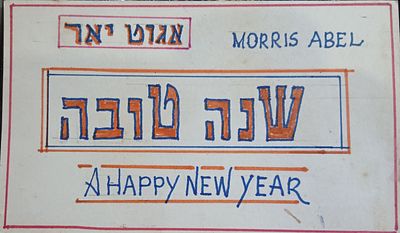 אגוט יאר
MORRIS ABEL
שנה טובה
A HAPPY NEW YEAR